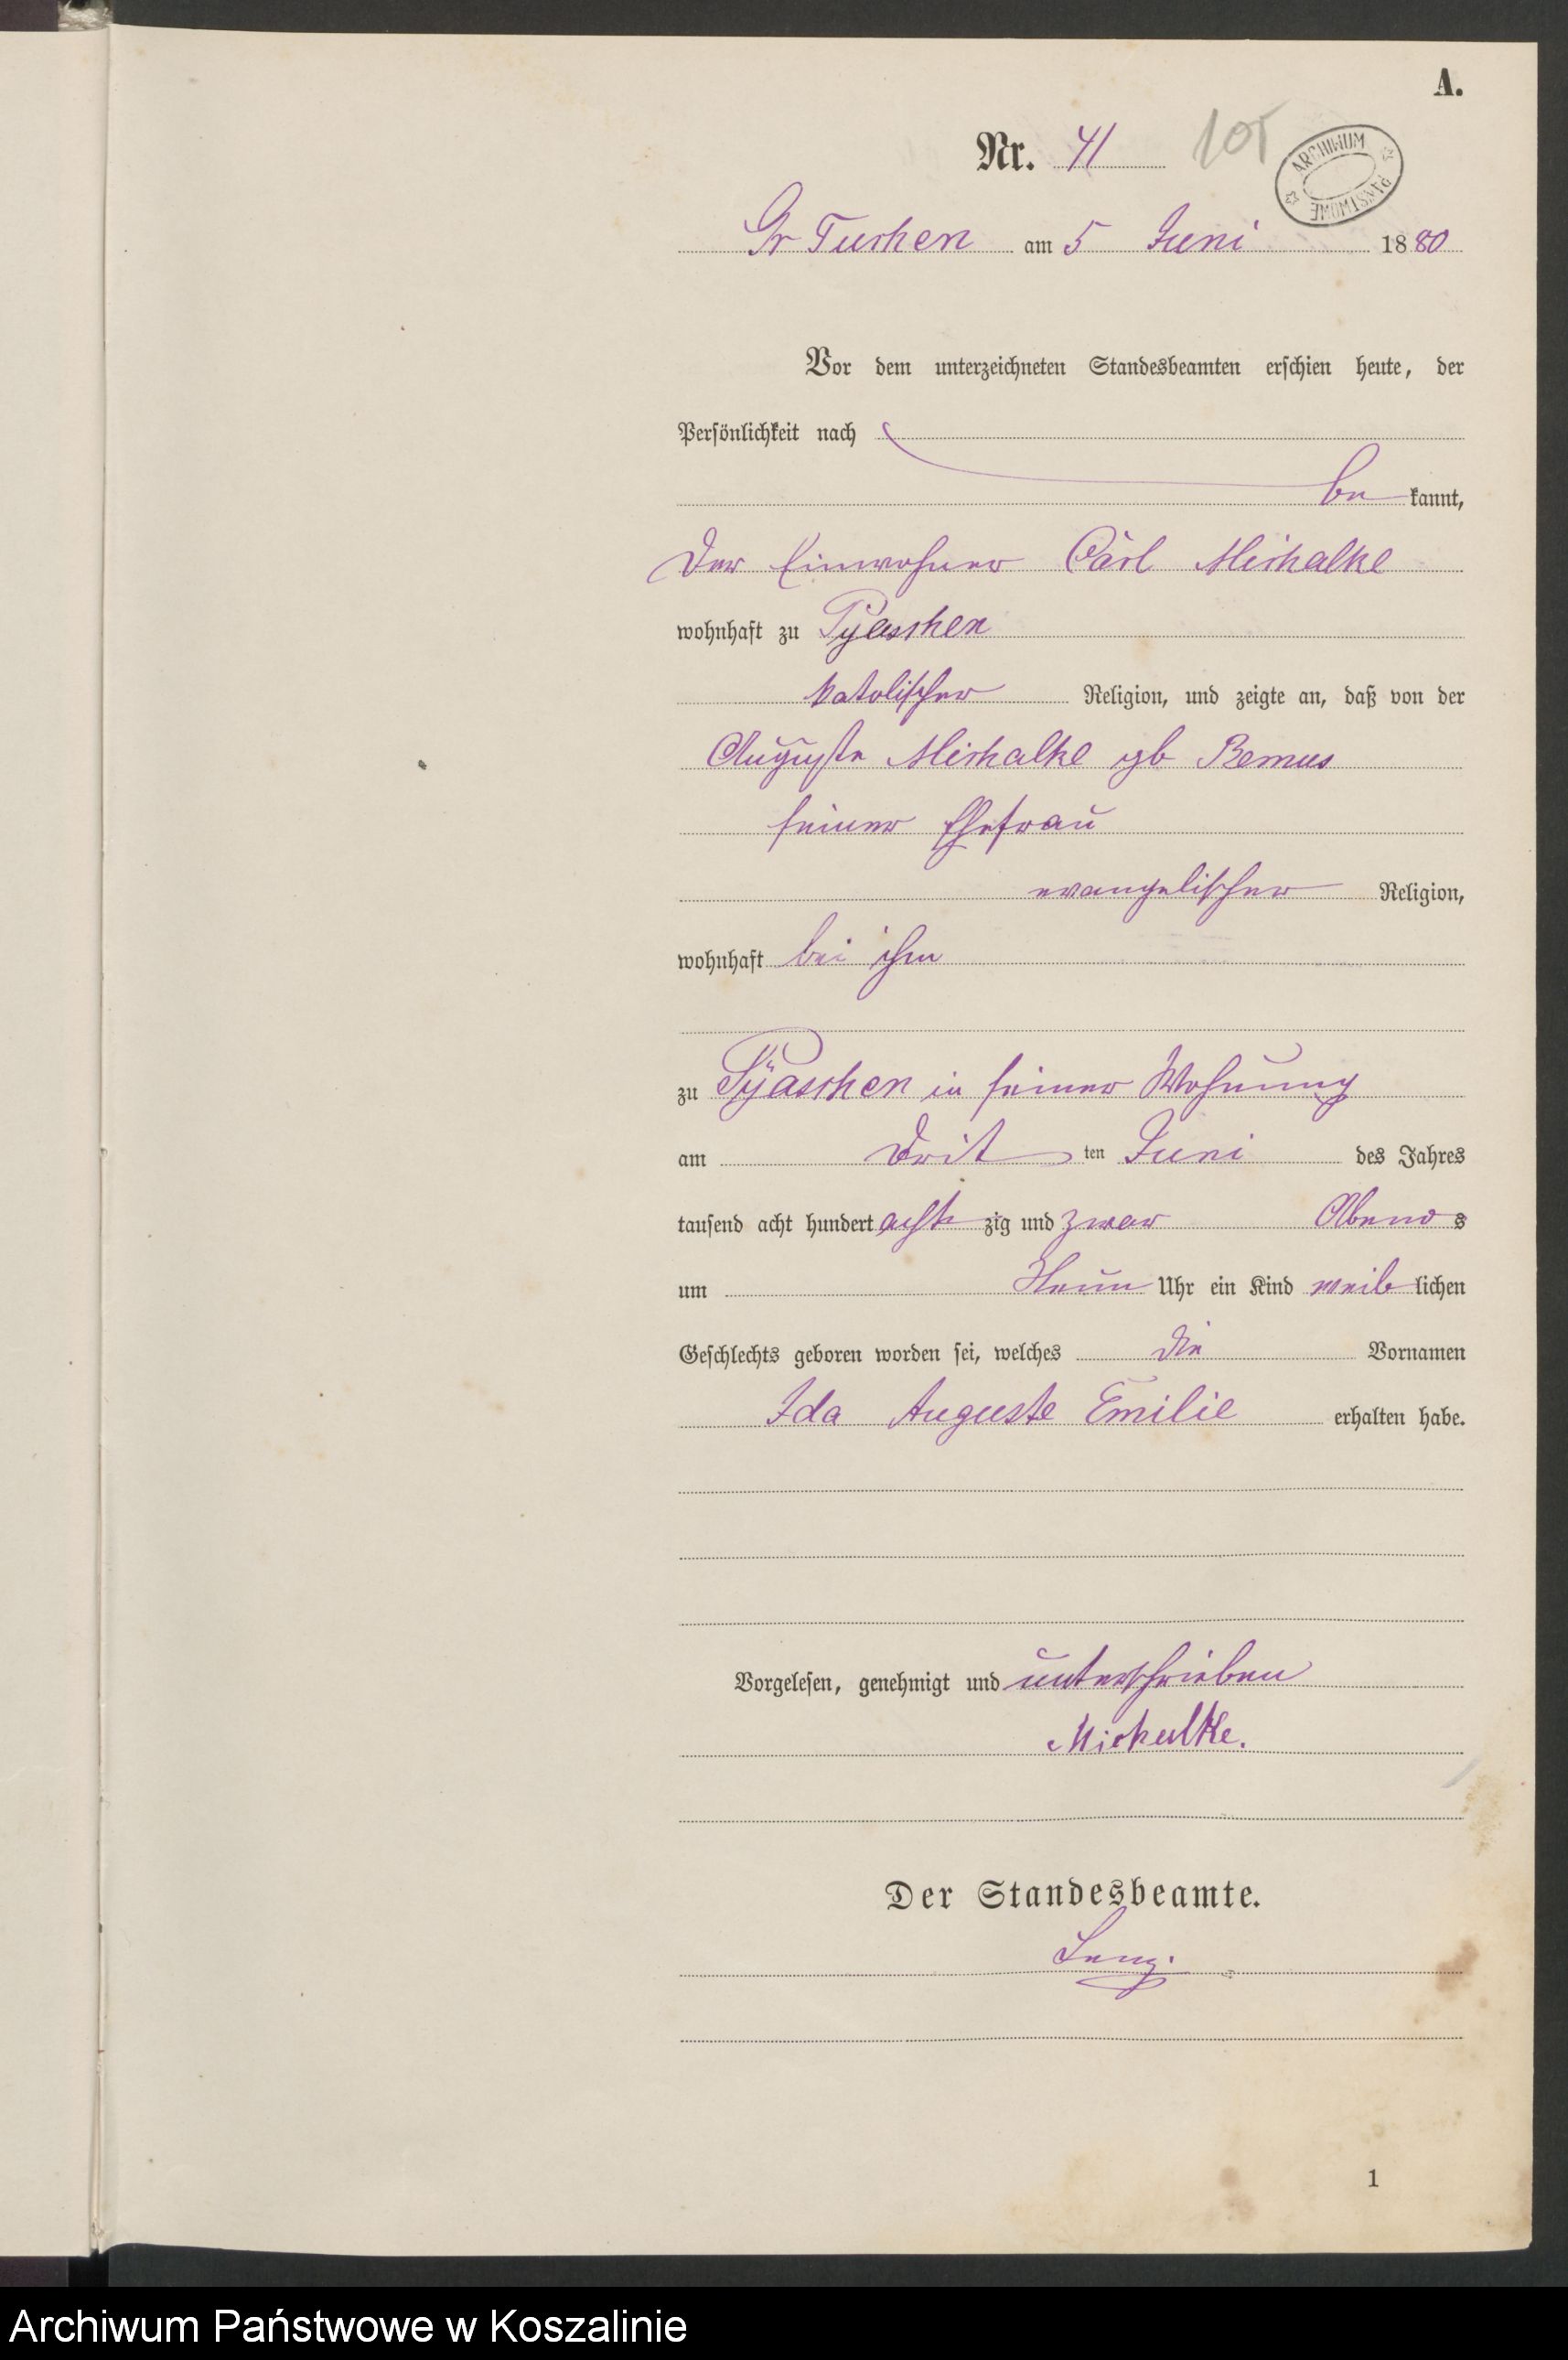 A.
Nr. 41 105
ARCHIWUM PAŃSTWOWE
Gr Tuchen am 5 Juni 1880
Vor dem unterzeichneten Standesbeamten erschien heute, der
Persönlichkeit nach
be kannt,
Der Einwohner Carl Michalke
wohnhaft zu Pyaschen
katolischer Religion, und zeigte an, daß von der
Auguste Michalke gb Remus
seiner Ehefrau
evangelischer Religion,
wohnhaft bei ihm
zu Pÿaschen in seiner Wohnung
am Drit ten Juni des Jahres
tausend acht hundert acht zig und zwar Abend s
um Neun Uhr ein Kind weib lichen
Geschlechts geboren worden sei, welches die Vornamen
Ida Auguste Emilie erhalten habe.
Vorgelesen, genehmigt und unterschrieben
Michalke.
Der Standesbeamte.
1
Archiwum Państwowe w Koszalinie